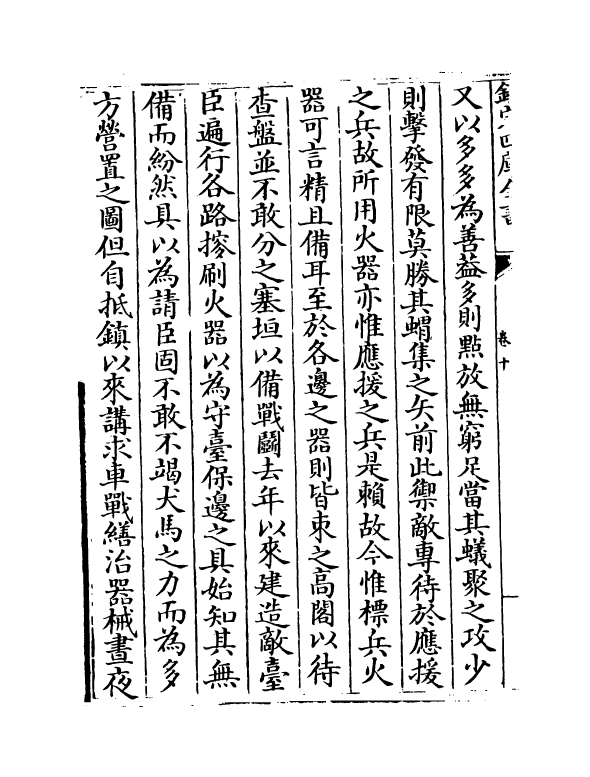 欽定四庫全書
卷十
又以多多為善益多則點放無窮足當其蟻聚之攻少
則擊發有限莫勝其蝟集之矢前此禦敵專待於應援
之兵故所用火器亦惟應援之兵是賴故今惟標兵火
器可言精且備耳至於各邊之器則皆束之高閣以待
查盤並不敢分之塞垣以備戰鬭去年以來建造敵臺
臣遍行各路搜刷火器以為守臺保邊之具始知其無
備而紛然具以為請臣固不敢不竭犬馬之力而為多
方營置之圖但自抵鎮以來講求車戰繕治器械晝夜